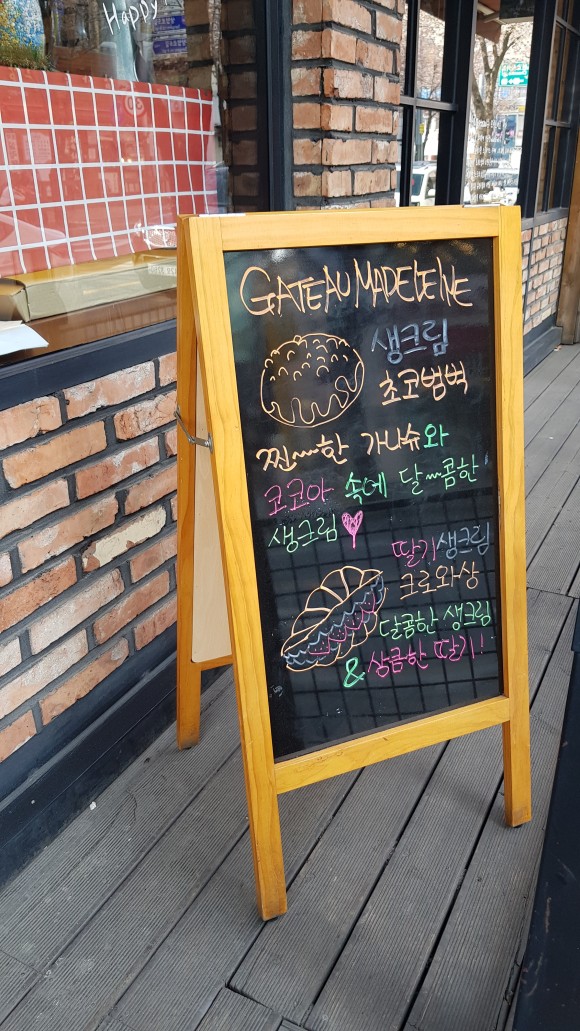 Happy
GATEAU MADELEINE
생크림
초코범벅
찐~~한 가나슈와
코코아 속에 달~~콤한
생크림
딸기생크림
크로와상
달콤한 생크림
& 상큼한 딸기!